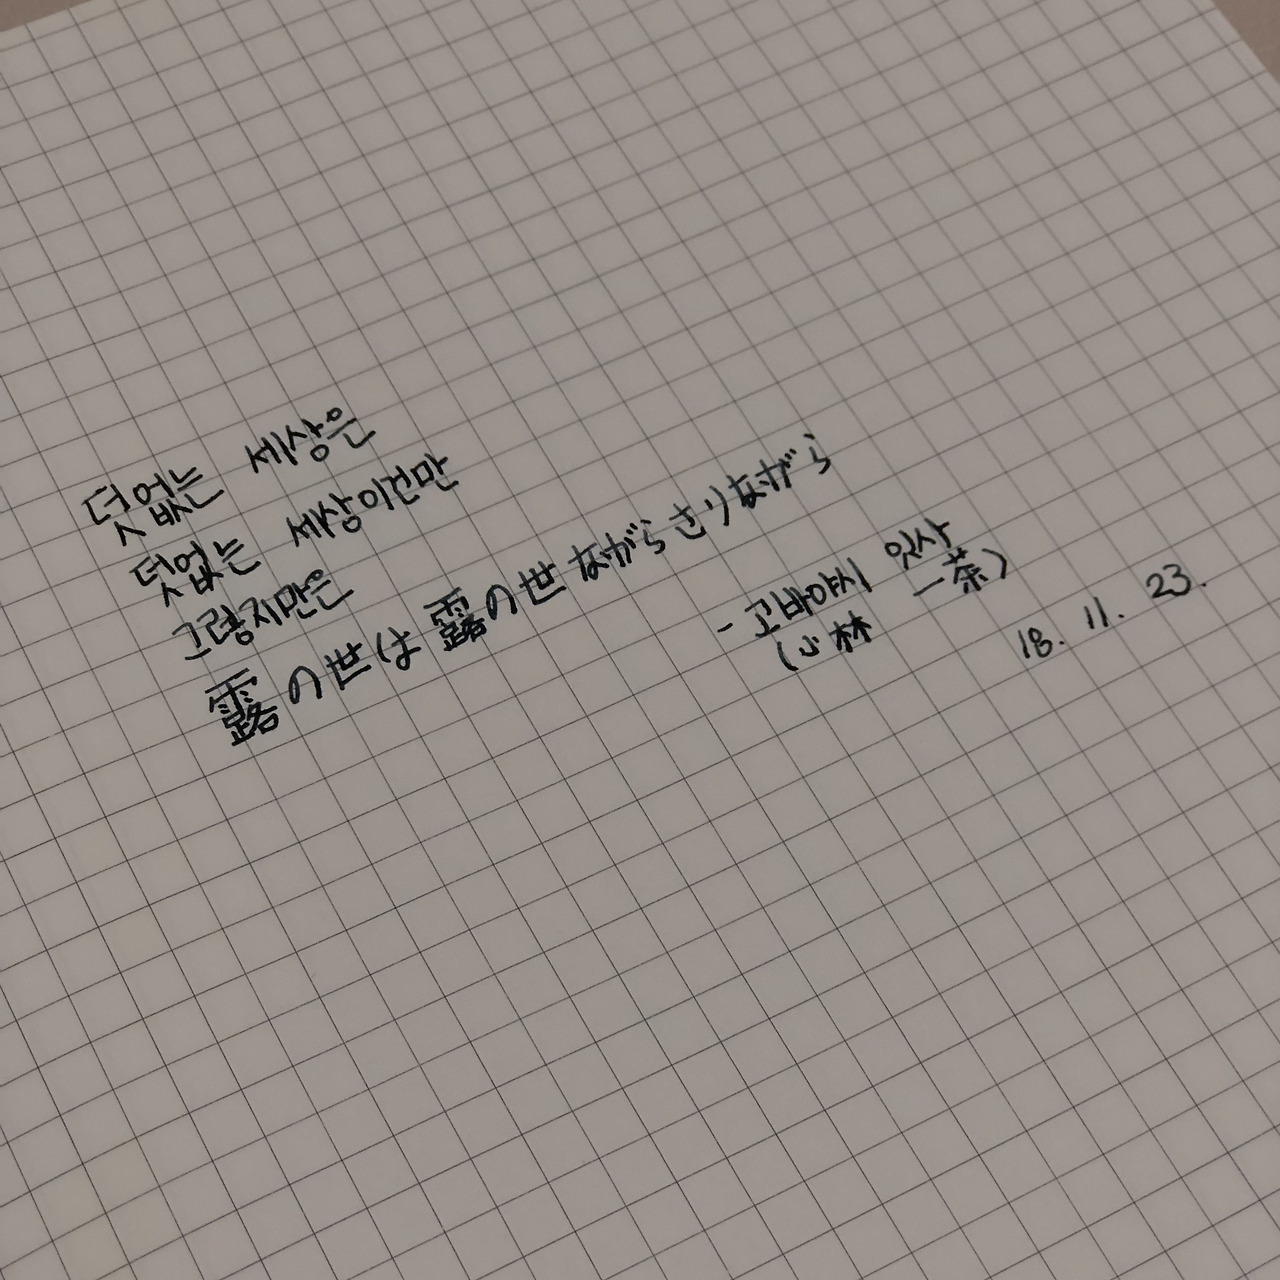 덧없는 세상은
덧없는 세상이건만
그렇지만은
露の世は露の世ながらさりながら
- 고바야시 잇사
(小林 一茶)
18. 11. 23.